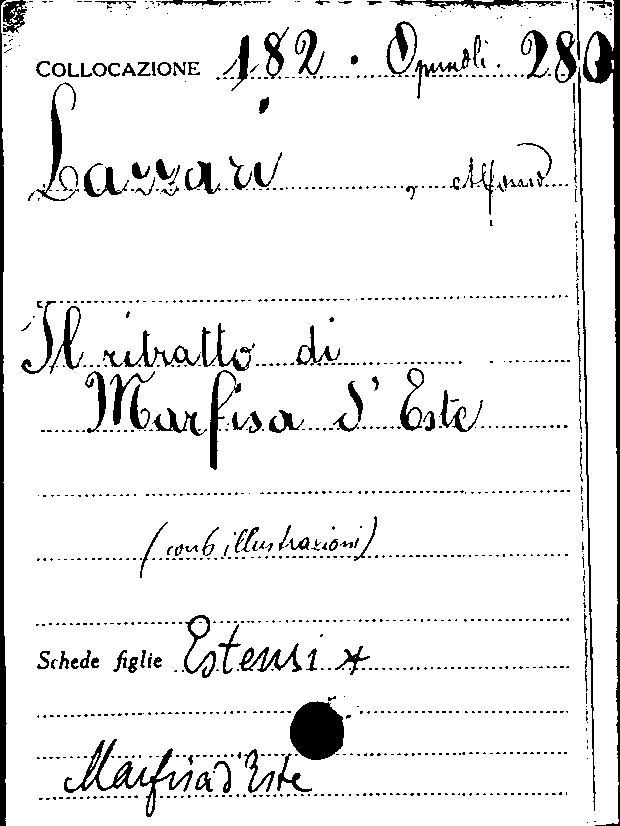 COLLOCAZIONE 182. Opuscoli. 280
Lazzari, Alfonso
Il ritratto di
Marfisa d'Este
(con 6 illustrazioni)
Schede figlie Estensi *
Marfisa d'Este